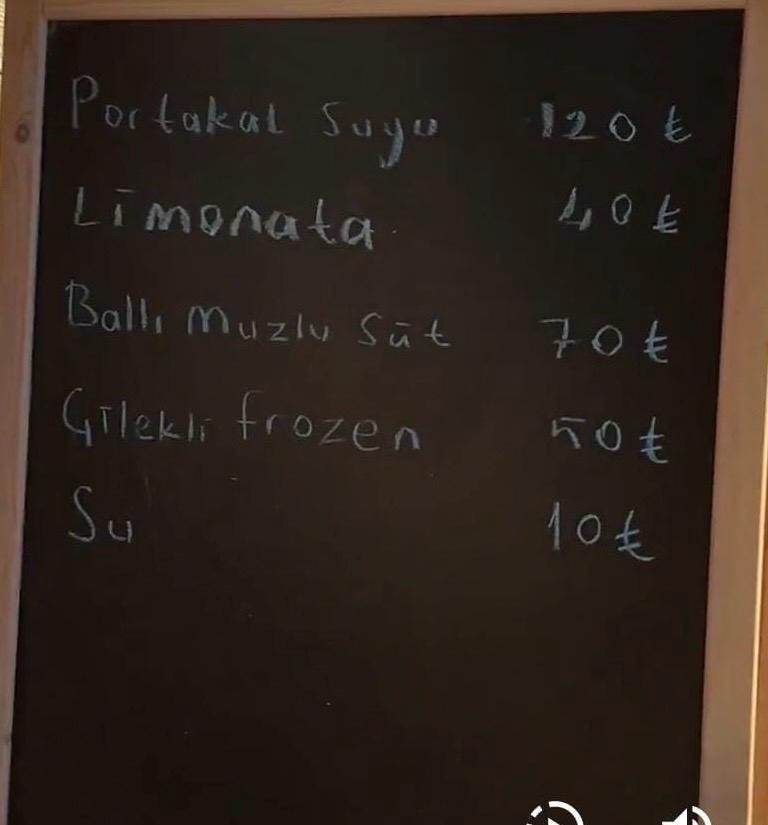 Portakal Suyu 120 ₺
Limonata 40 ₺
Ballı muzlu Süt 70 ₺
Çilekli frozen 50 ₺
Su 10 ₺